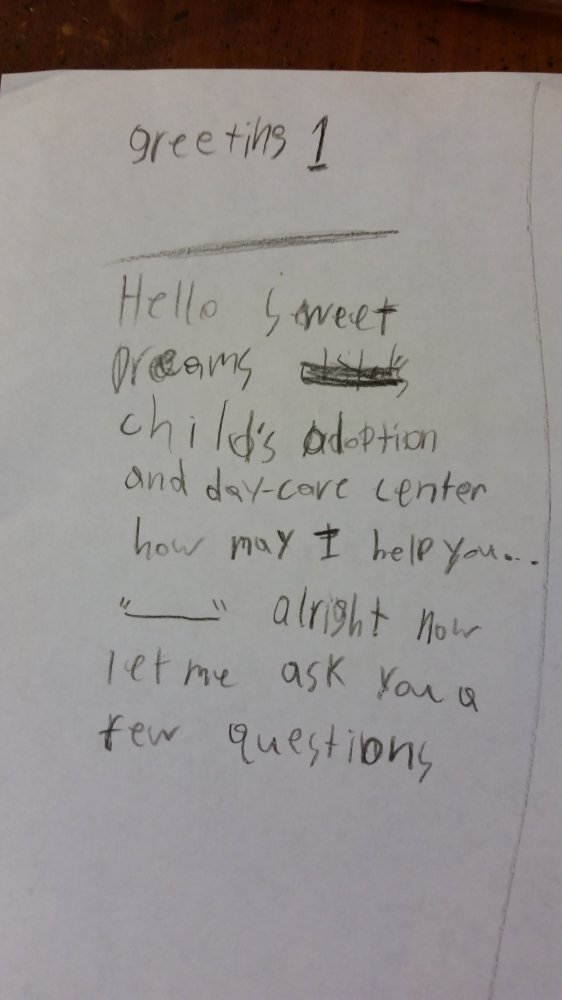 greeting 1
Hello sweet
Dreams
child's adoption
and day-care center
how may I help you...
"____" alright now
let me ask you a
few questions